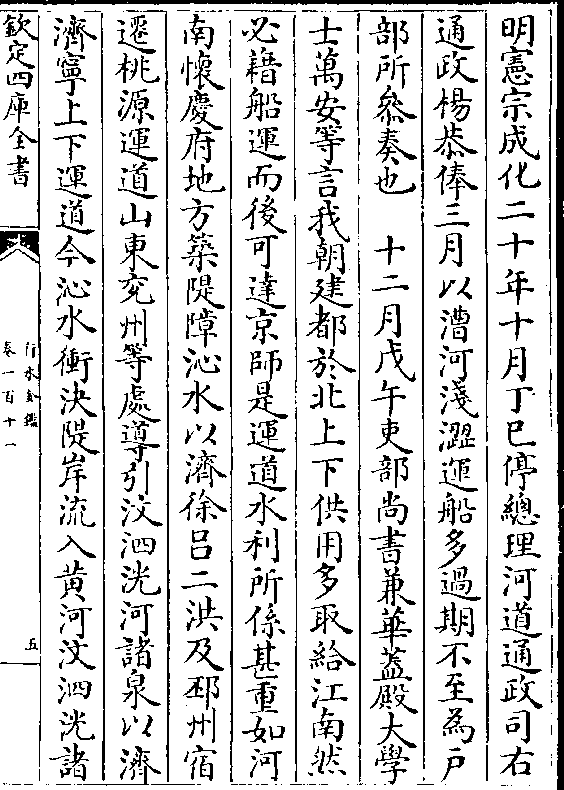 明憲宗成化二十年十月丁巳停總理河道通政司右
通政楊恭俸三月以漕河淺澀運船多過期不至為户
部所叅奏也　十二月戊午吏部尚書兼華葢殿大學
士萬安等言我朝建都於北上下供用多取給江南然
必藉船運而後可達京師是運道水利所係甚重如河
南懷慶府地方築隄障沁水以濟徐吕二洪及邳州宿
遷桃源運道山東兖州等處導引汶泗洸河諸泉以濟
濟寧上下運道今沁水衝決隄岸流入黄河汶泗洸諸
欽定四庫全書
行水金鑑
卷一百十一
五